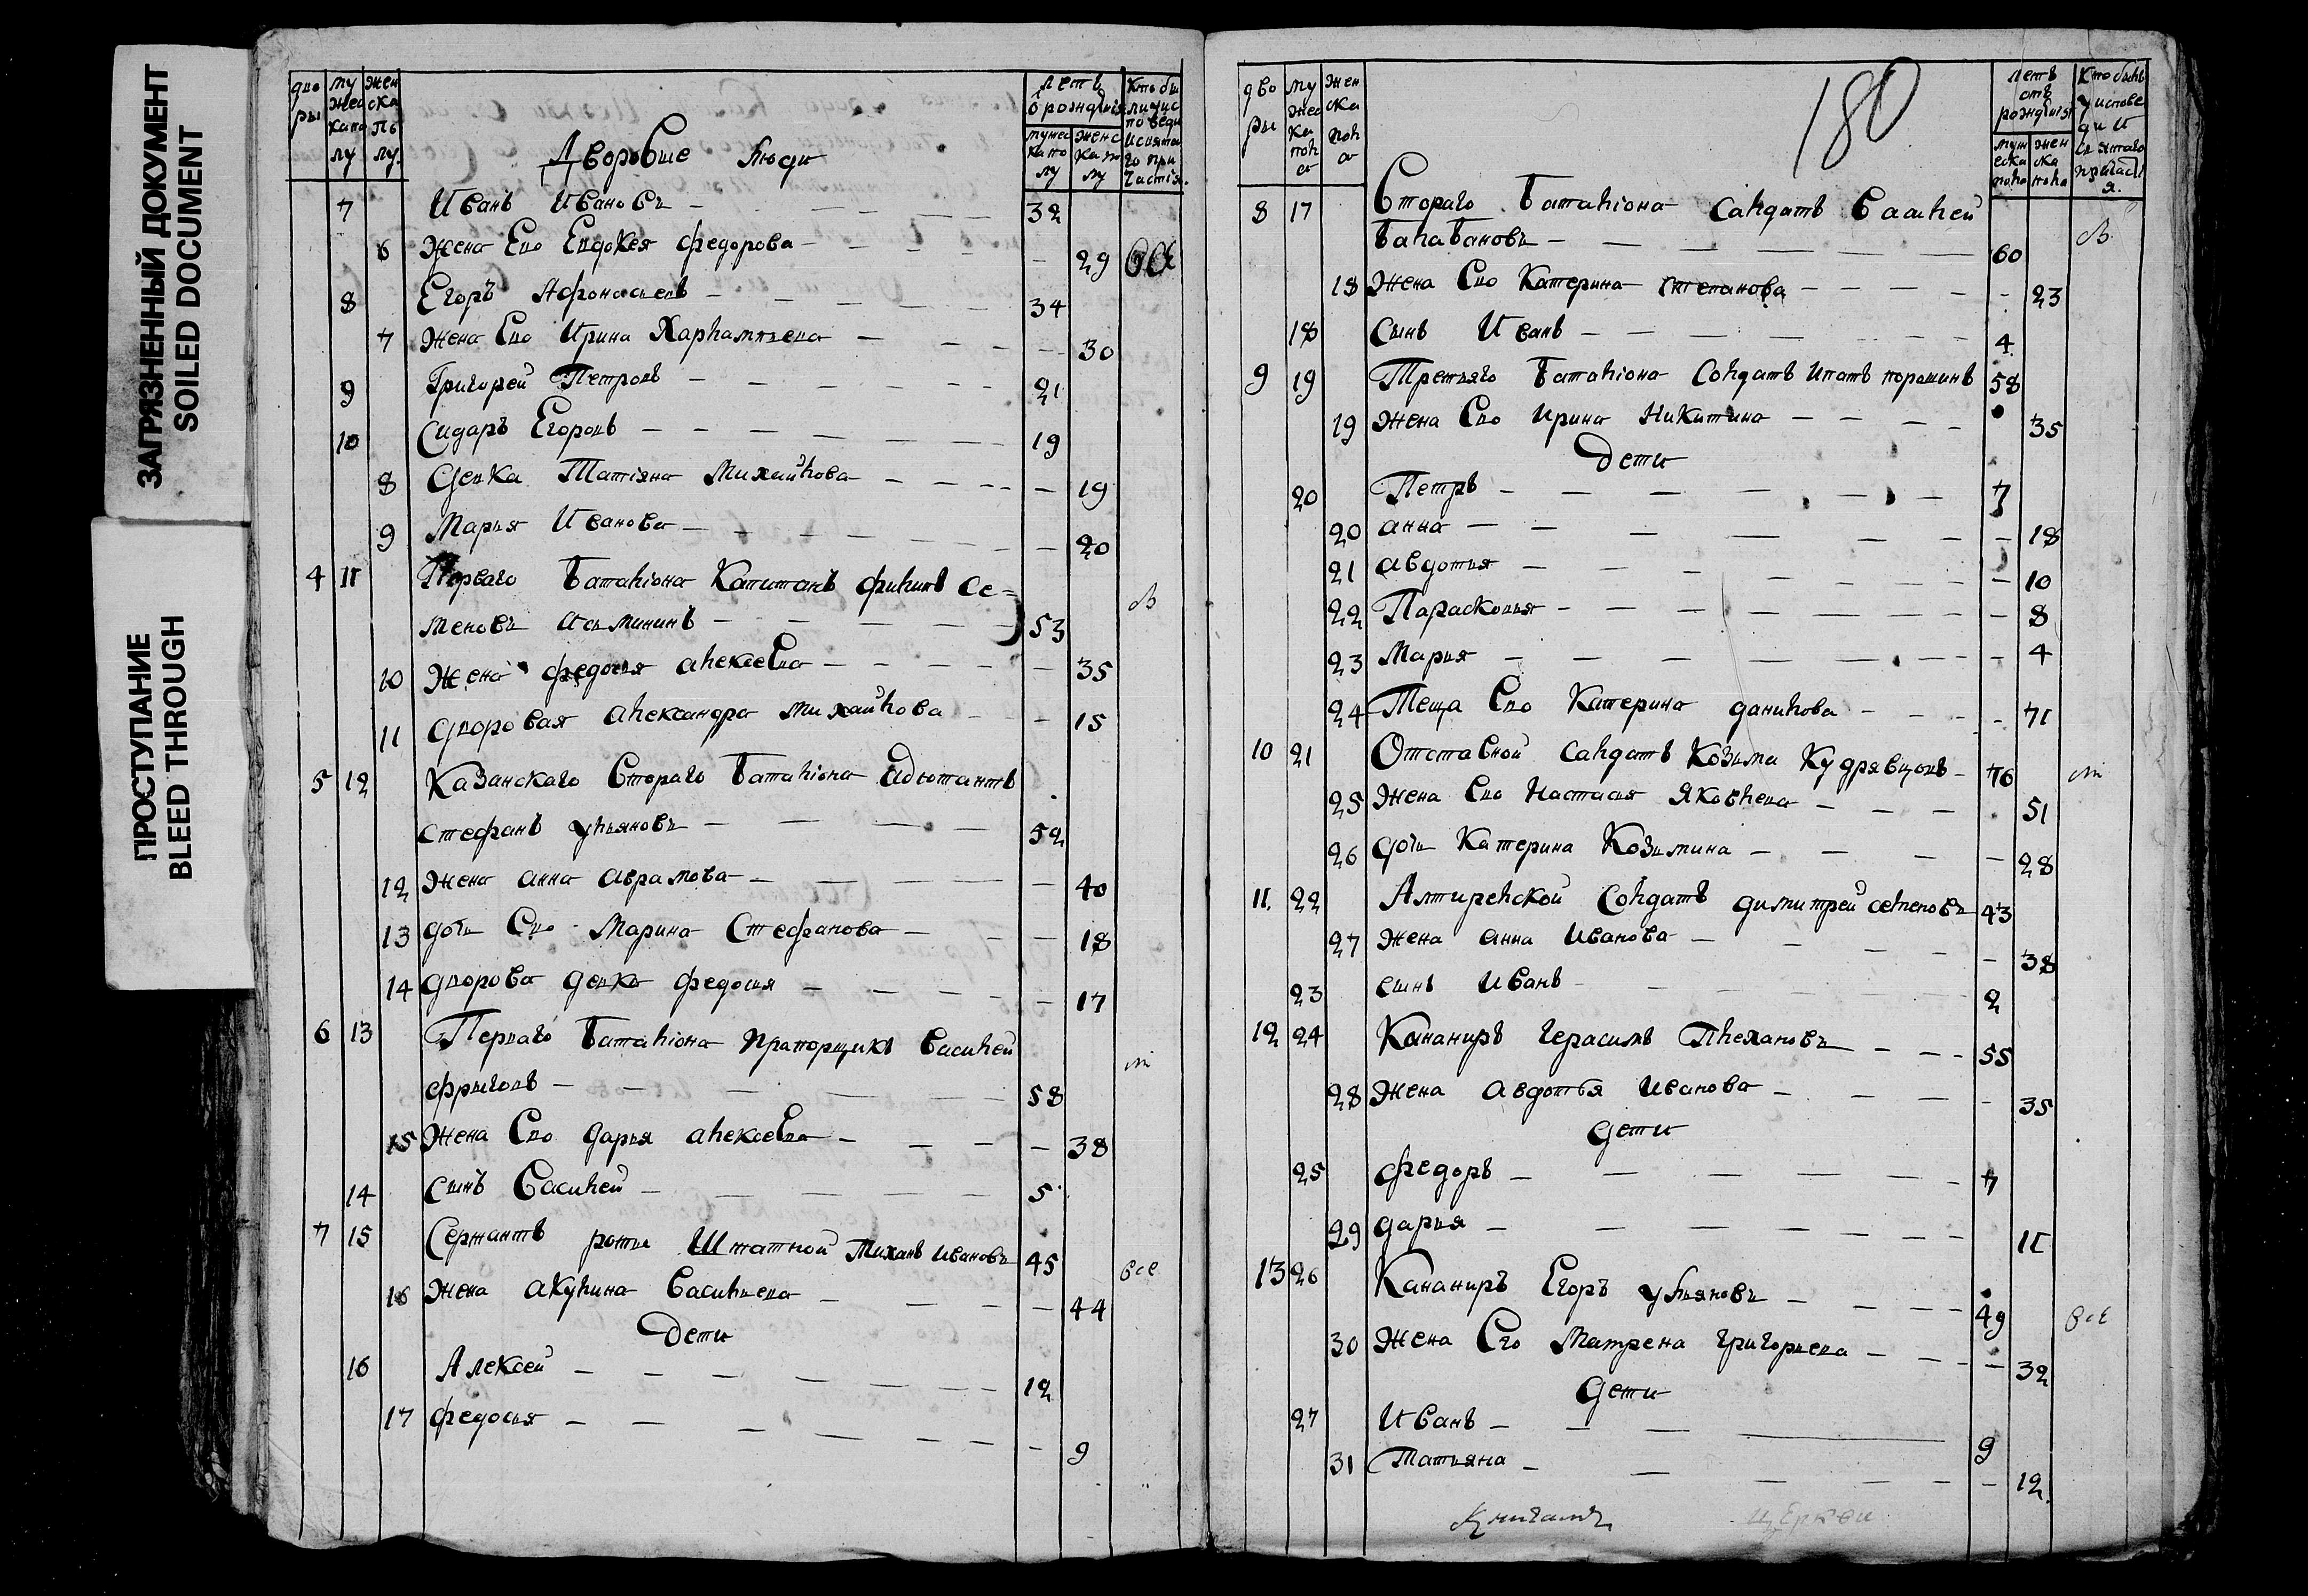 ЗАГРЯЗНЕННЫЙ ДОКУМЕНТ
SOILED DOCUMENT
ПРОСТУПАНИЕ
BLEED THROUGH
дво ры
му жеска полу
женска полу
летъ от рождѣния
мужеска полу
женска полу
Дворовые люди
7 Иванъ Ивановъ 32
6 Жена Ево Евдокея федорова 29
8 Егоръ Афонасьевъ 34
7 Жена Ево Ирина Харлампьева 30
9 Григорей Петровъ 21
10 Сидаръ Егоровъ 19
8 Девка Татiяна Михайлова 19
9 Марья Иванова 20
4 11 Перваго баталiона Капитанъ филипъ Се=
меновъ Асьмининъ 53
10 Жена федосья алексеева 35
11 дворовая александра михайлова 15
5 12 Казанскаго Втораго баталiона Адьютантъ
стефанъ ульяновъ 52
12 Жена анна аврамова 40
13 дочь Ево Марина Стефанова 18
14 дворова девка федосья 17
6 13 Перваго баталiона прапорщикъ Василей
фрыговъ 58
15 Жена Ево дарья алексеева 38
14 сынъ Василей 5
7 15 Сержантъ роты Штатной Михаилъ Ивановъ 45 все
16 Жена акулина Васильева 44
Дети
16 Алексей 12
17 федосья 9
180
дво ры
му жеска пола
женска пола
летъ отъ рождѣния
мужеска пола
женска пола
кто былъ у исповеди и святаго причастия
8 17 Втораго баталiона салдатъ Василей
балабановъ 60
18 Жена Ево Катерина степанова 23
18 Сынъ Иванъ 4
9 19 Третьяго баталiона Солдатъ Ипатъ порошинъ 58
19 Жена Ево Ирина Никитина 35
Дети
20 Петръ 7
20 анна 18
21 авдотья 10
22 Парасковья 8
23 Марья 4
24 Теща Ево Катерина данилова 71
10 21 Отставной салдатъ Козьма Кудрявцовъ 76
25 Жена Ево Настасья Яковлева 51
26 дочь Катерина Козьмина 28
11 22 Алтирельской Солдатъ димитрей семеновъ 43
27 Жена анна Иванова 38
23 сынъ Иванъ 2
12 24 Кананиръ Герасимъ Плехановъ 55
28 Жена авдотья Иванова 35
дети
25 федоръ 7
29 дарья 11
13 26 Кананиръ Егоръ ульяновъ 49 все
30 Жена Его Матрена григорьева 32
дети
27 Иванъ 9
31 Татьяна 12
церкви